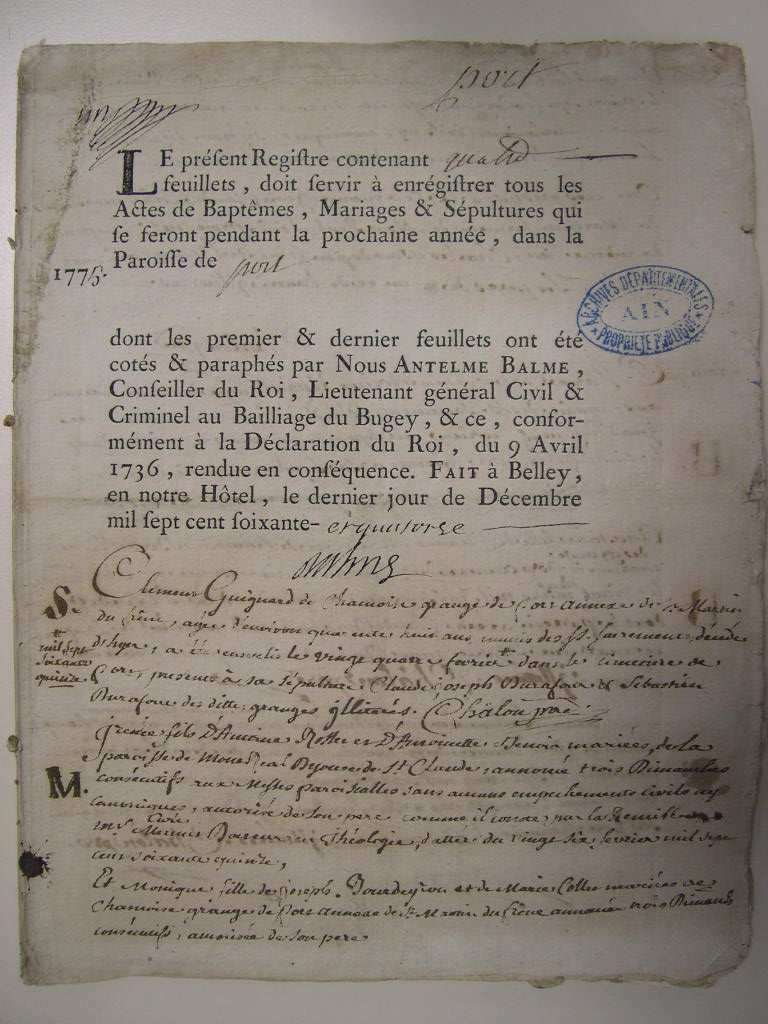 port
LE préſent Regiſtre contenant quatre
feuillets, doit ſervir à enrégiſtrer tous les
Actes de Baptêmes, Mariages & Sépultures qui
ſe feront pendant la prochaine année, dans la
Paroiſſe de port
1775.
ARCHIVES DÉPARTEMENTALES
AIN
PROPRIÉTÉ PUBLIQUE
dont les premier & dernier feuillets ont été
cotés & paraphés par Nous ANTELME BALME,
Conſeiller du Roi, Lieutenant général Civil &
Criminel au Bailliage du Bugey, & ce, confor-
mément à la Déclaration du Roi, du 9 Avril
1736, rendue en conſéquence. FAIT à Belley,
en notre Hôtel, le dernier jour de Décembre
mil ſept cent ſoixante- et quatorze
Balme
Clement Guignard de Chamoise grange de Port annexe de St Martin
S.
du frêne, agé d'environ quarente huit ans muni des SS. sacrements, décédé
d'hyer, a été enseveli le vingt quatre fevrier dans le cimetière de
mil sept
soixante
quinze
Port, presents à sa sépulture Claude joseph Burafour et Sebastien
Burafour des dittes granges illitérés. Châlon prê
fils D'Antoine et D'Antoinette Benoit mariées, de la
M.
paroisse de Diocese de St Claude, annoncé trois Dimanches
consécutifs aux Messes paroissialles sans aucune empechements civils ny
canoniques, autorisé de son pere comme il conste par la Remise
Mr Mermet Curé Docteur en Théologie, dattée du vingt six fevrier mil sept
cent soixante quinze,
Et Monique fille de joseph Bourdeyron et de Marie Collet mariées de
Chamoise grange de Port annexe de St Martin du frêne annoncée trois Dimanch
consécutifs, autorisée de son pere